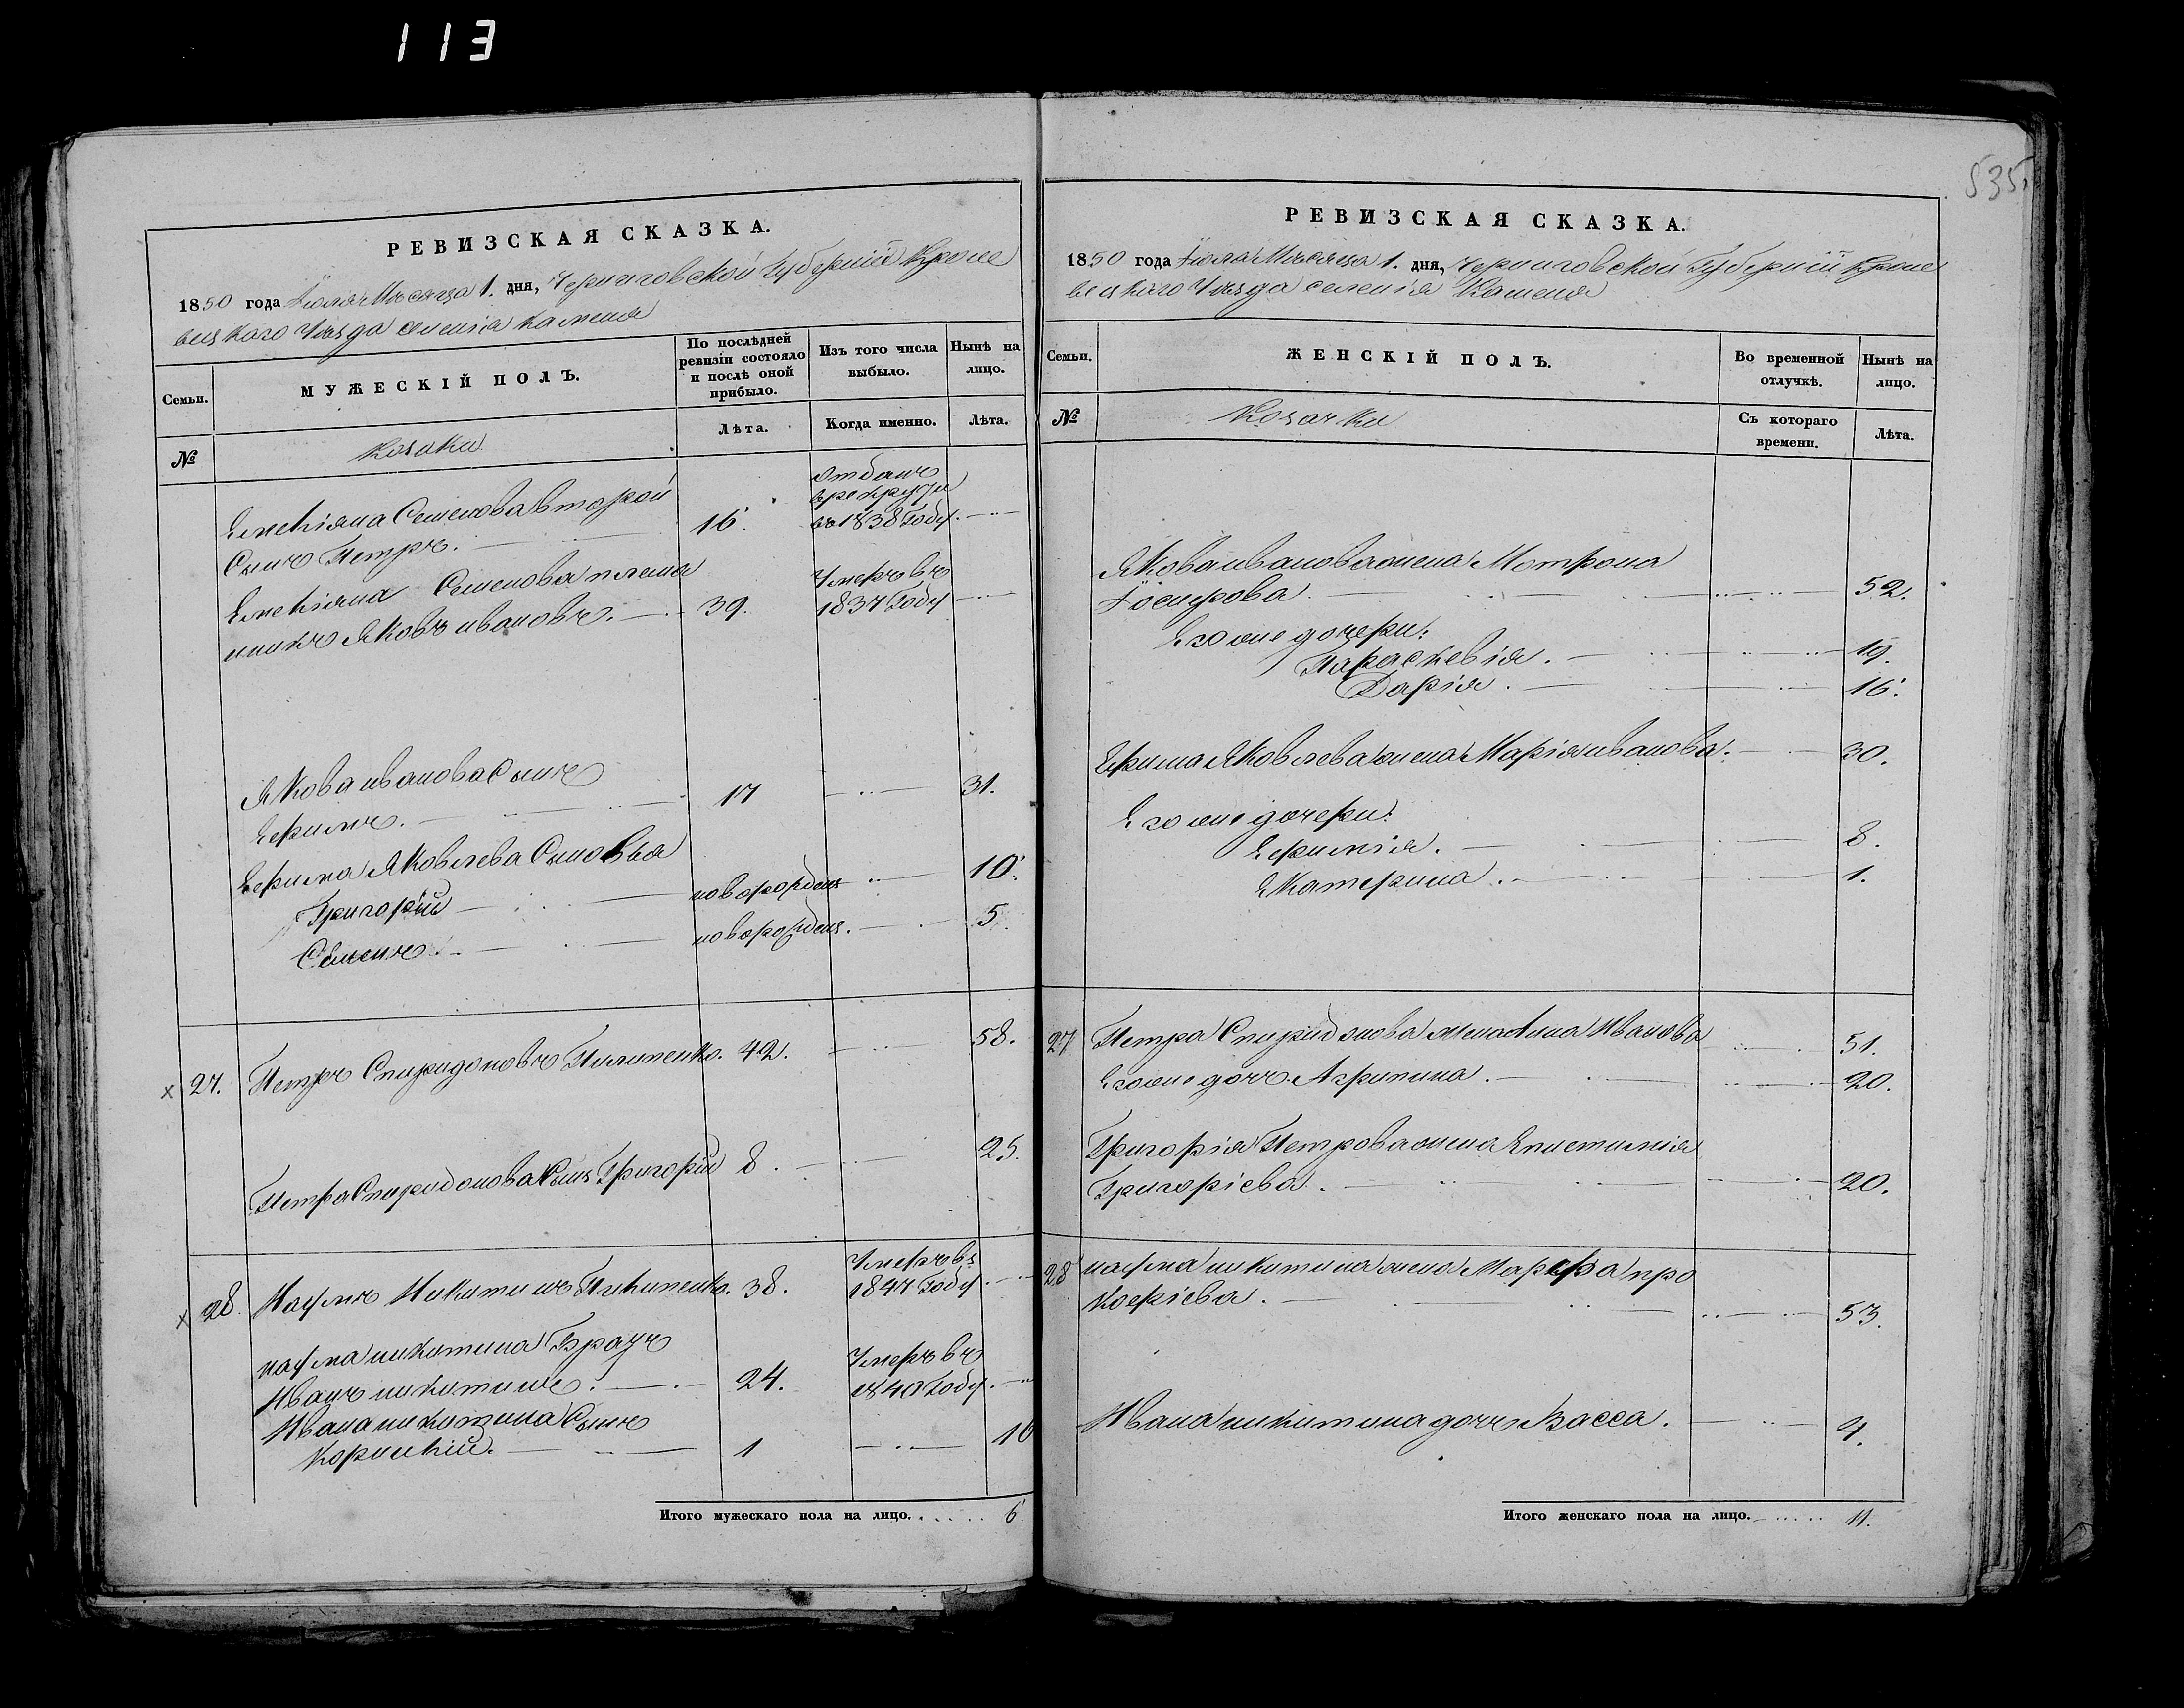 113
535
РЕВИЗСКАЯ СКАЗКА.
1850 года Іюля Мѣсяца 1. дня, Черниговской Губерніи Кроле
вецкаго Уѣзда селенія Каменя
Семьи.
МУЖЕСКІЙ ПОЛЪ.
По послѣдней
ревизіи состояло
и послѣ оной
прибыло.
Изъ того числа
выбыло.
Нынѣ на
лицо.
№
Козаки
Лѣта.
Когда именно.
Лѣта.
Емеліяна Семенова второй
Сынъ Петръ. 16.
Отданъ
в рекруты
въ 1838 Году.
Емеліяна Семенова племя
никъ Яковъ ивановъ. 39.
Умеръ въ
1837 Году
Якова иванова Сынъ
Ефимъ. 17 31.
Ефима Яковлева Сыновья
Григорій новорожден 10.
Семенъ новорожден. 5.
27. Петръ Спиридоновъ Пилипенко. 42. 58.
Петра Спиридонова Сынъ Григорій 8. 25.
28. Наумъ Никитинъ Пилипенко. 38.
Умеръ въ
1847 Году
наума никитина Братъ
Иванъ никитинъ. 24.
Умеръ въ
1840 Году.
Ивана никитина Сынъ
Корнилій. 1 16
Итого мужескаго пола на лицо. 6.
РЕВИЗСКАЯ СКАЗКА.
1850 года Іюля Мѣсяца 1. дня, Черниговской Губерніи Кроле
вецкаго Уѣзда селенія Каменя
Семьи.
ЖЕНСКІЙ ПОЛЪ.
Во временной
отлучкѣ.
Нынѣ на
лицо.
№
Козачки
Съ котораго
времени.
Лѣта.
Якова иванова жена Мотрона
Іосифова. 52.
Его же дочери:
Параскевія. 19.
Дарія. 16.
Ефима Яковлева жена Марія иванова. 30.
Его же дочери:
Ефимія. 8.
Екатерина. 1.
27 Петра Спиридонова жена Анна Иванова 51.
Его же дочь Агрипина. 20.
Григорія Петрова жена Епистимія
Григоріева. 20.
28 наума никитина жена Марфа про
кофіева. 53.
Ивана никитина дочь Васса. 4.
Итого женскаго пола на лицо. 11.